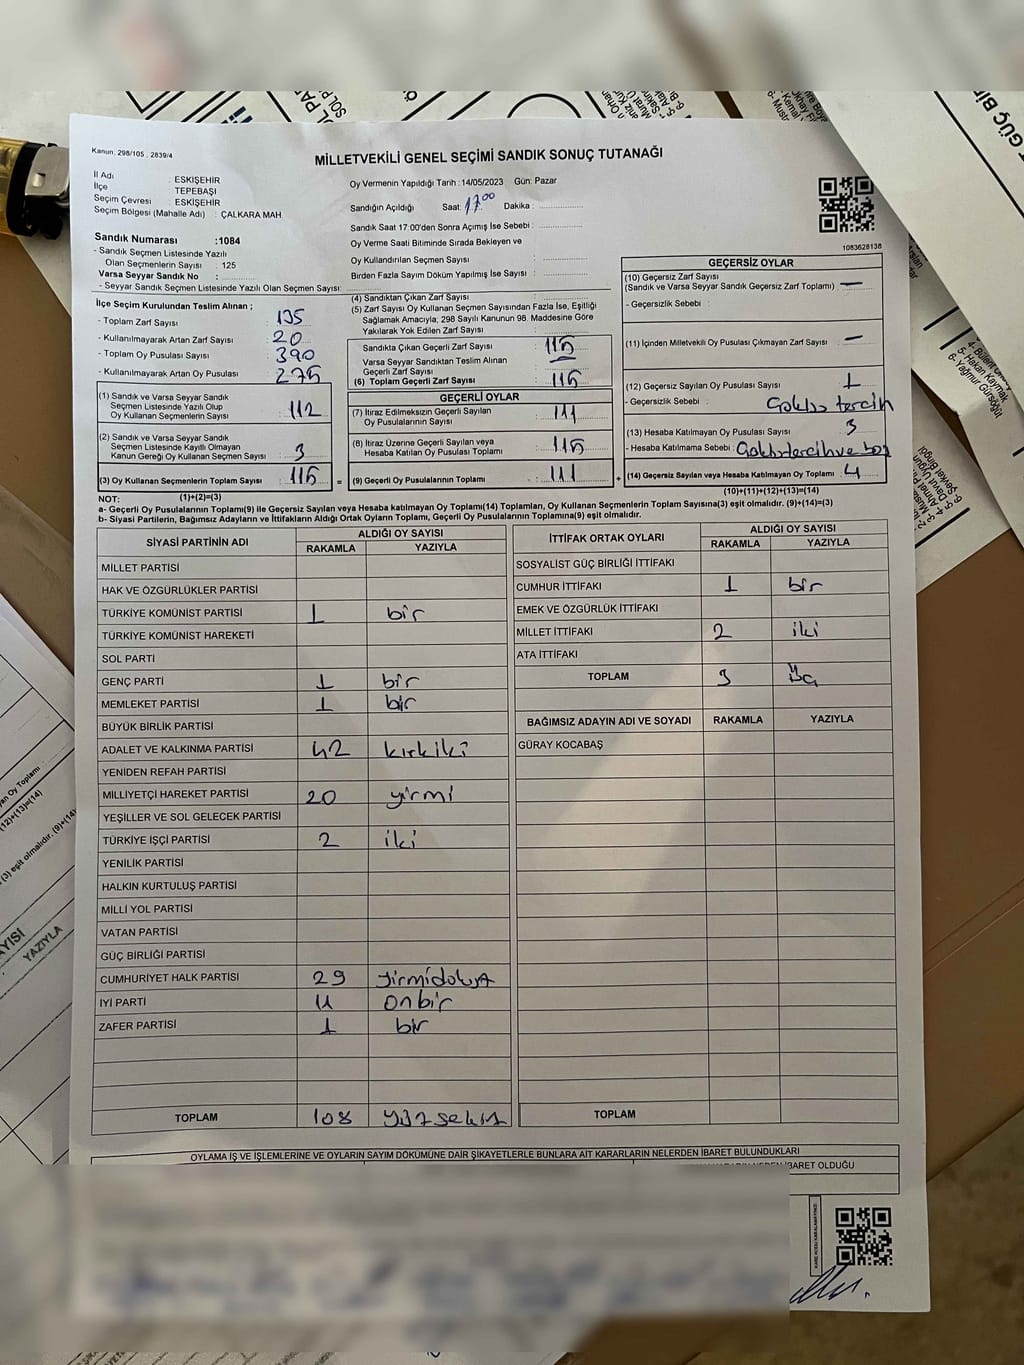 Kanun: 298/105 , 2839/4
MİLLETVEKİLİ GENEL SEÇİMİ SANDIK SONUÇ TUTANAĞI
İl Adı : ESKİŞEHİR
İlçe : TEPEBAŞI
Seçim Çevresi : ESKİŞEHİR
Seçim Bölgesi (Mahalle Adı) : ÇALKARA MAH.
Sandık Numarası :1084
- Sandık Seçmen Listesinde Yazılı
Olan Seçmenlerin Sayısı : 125
Varsa Seyyar Sandık No :
- Seyyar Sandık Seçmen Listesinde Yazılı Olan Seçmen Sayısı:
Oy Vermenin Yapıldığı Tarih :14/05/2023 Gün: Pazar
Sandığın Açıldığı Saat: 17.00 Dakika :
Sandık Saat 17:00'den Sonra Açımış İse Sebebi :
Oy Verme Saati Bitiminde Sırada Bekleyen ve
Oy Kullandırılan Seçmen Sayısı :
Birden Fazla Sayım Döküm Yapılmış İse Sayısı :
1083628138
İlçe Seçim Kurulundan Teslim Alınan ;
- Toplam Zarf Sayısı : 135
- Kullanılmayarak Artan Zarf Sayısı : 20
- Toplam Oy Pusulası Sayısı : 390
- Kullanılmayarak Artan Oy Pusulası : 275
(1) Sandık ve Varsa Seyyar Sandık
Seçmen Listesinde Yazılı Olup
Oy Kullanan Seçmenlerin Sayısı : 112
(2) Sandık ve Varsa Seyyar Sandık
Seçmen Listesinde Kayıtlı Olmayan
Kanun Gereği Oy Kullanan Seçmen Sayısı : 3
(3) Oy Kullanan Seçmenlerin Toplam Sayısı : 115
(1)+(2)=(3)
(4) Sandıktan Çıkan Zarf Sayısı :
(5) Zarf Sayısı Oy Kullanan Seçmen Sayısından Fazla İse, Eşitliği
Sağlamak Amacıyla; 298 Sayılı Kanunun 98. Maddesine Göre
Yakılarak Yok Edilen Zarf Sayısı :
Sandıkta Çıkan Geçerli Zarf Sayısı : 115
Varsa Seyyar Sandıktan Teslim Alınan
Geçerli Zarf Sayısı :
(6) Toplam Geçerli Zarf Sayısı : 115
GEÇERLİ OYLAR
(7) İtiraz Edilmeksizin Geçerli Sayılan
Oy Pusulalarının Sayısı : 111
(8) İtiraz Üzerine Geçerli Sayılan veya
Hesaba Katılan Oy Pusulası Toplamı : 115
(9) Geçerli Oy Pusulalarının Toplamı : 111
GEÇERSİZ OYLAR
(10) Geçersiz Zarf Sayısı
(Sandık ve Varsa Seyyar Sandık Geçersiz Zarf Toplamı) : —
- Geçersizlik Sebebi :
(11) İçinden Milletvekili Oy Pusulası Çıkmayan Zarf Sayısı : —
(12) Geçersiz Sayılan Oy Pusulası Sayısı : 1
- Geçersizlik Sebebi : tercih
(13) Hesaba Katılmayan Oy Pusulası Sayısı : 3
- Hesaba Katılmama Sebebi :
(14) Geçersiz Sayılan veya Hesaba Katılmayan Oy Toplamı : 4
(10)+(11)+(12)+(13)=(14)
NOT:
a- Geçerli Oy Pusulalarının Toplamı(9) ile Geçersiz Sayılan veya Hesaba katılmayan Oy Toplamı(14) Toplamları, Oy Kullanan Seçmenlerin Toplam Sayısına(3) eşit olmalıdır. (9)+(14)=(3)
b- Siyasi Partilerin, Bağımsız Adayların ve İttifakların Aldığı Ortak Oyların Toplamı, Geçerli Oy Pusulalarının Toplamına(9) eşit olmalıdır.
SİYASİ PARTİNİN ADI ALDIĞI OY SAYISI
RAKAMLA YAZIYLA
MİLLET PARTİSİ
HAK VE ÖZGÜRLÜKLER PARTİSİ
TÜRKİYE KOMÜNİST PARTİSİ 1 bir
TÜRKİYE KOMÜNİST HAREKETİ
SOL PARTİ
GENÇ PARTİ 1 bir
MEMLEKET PARTİSİ 1 bir
BÜYÜK BİRLİK PARTİSİ
ADALET VE KALKINMA PARTİSİ 42 kırkiki
YENİDEN REFAH PARTİSİ
MİLLİYETÇİ HAREKET PARTİSİ 20 yirmi
YEŞİLLER VE SOL GELECEK PARTİSİ
TÜRKİYE İŞÇİ PARTİSİ 2 iki
YENİLİK PARTİSİ
HALKIN KURTULUŞ PARTİSİ
MİLLİ YOL PARTİSİ
VATAN PARTİSİ
GÜÇ BİRLİĞİ PARTİSİ
CUMHURİYET HALK PARTİSİ 29 yirmidokuz
İYİ PARTİ 11 onbir
ZAFER PARTİSİ 1 bir
TOPLAM 108 yüzsekiz
İTTİFAK ORTAK OYLARI ALDIĞI OY SAYISI
RAKAMLA YAZIYLA
SOSYALİST GÜÇ BİRLİĞİ İTTİFAKI
CUMHUR İTTİFAKI 1 bir
EMEK VE ÖZGÜRLÜK İTTİFAKI
MİLLET İTTİFAKI 2 iki
ATA İTTİFAKI
TOPLAM 3 Üç
BAĞIMSIZ ADAYIN ADI VE SOYADI RAKAMLA YAZIYLA
GÜRAY KOCABAŞ
TOPLAM
OYLAMA İŞ VE İŞLEMLERİNE VE OYLARIN SAYIM DÖKÜMÜNE DAİR ŞİKAYETLERLE BUNLARA AİT KARARLARIN NELERDEN İBARET BULUNDUKLARI
İBARET OLDUĞU